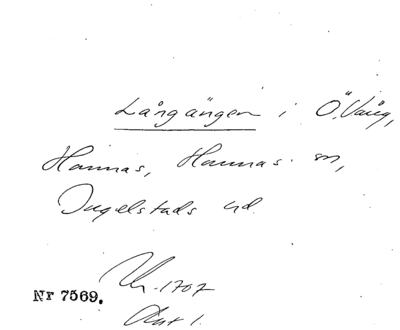 Långängen i Ö. Vång,
Hannas, Hannas sn,
Ingelstads hd.
1707
Nr 7569.
Akt 1.